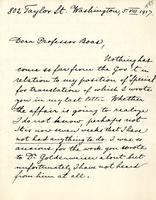 802 Taylor St. Washington, 5 VIII 1917
Dear Professor Boas,
Nothing has
come so far from the Gov't in
relation to my position of special
for translation of which I wrote
you in my last letter. Whether
the affair is going to realize
I do not know, perhaps not.
It is now seven weeks that I have
not had anything to do. I was
anxious for the work you wrote
to Dr. Goldenweiser about but
unfortunately I have not heard
from him at all.